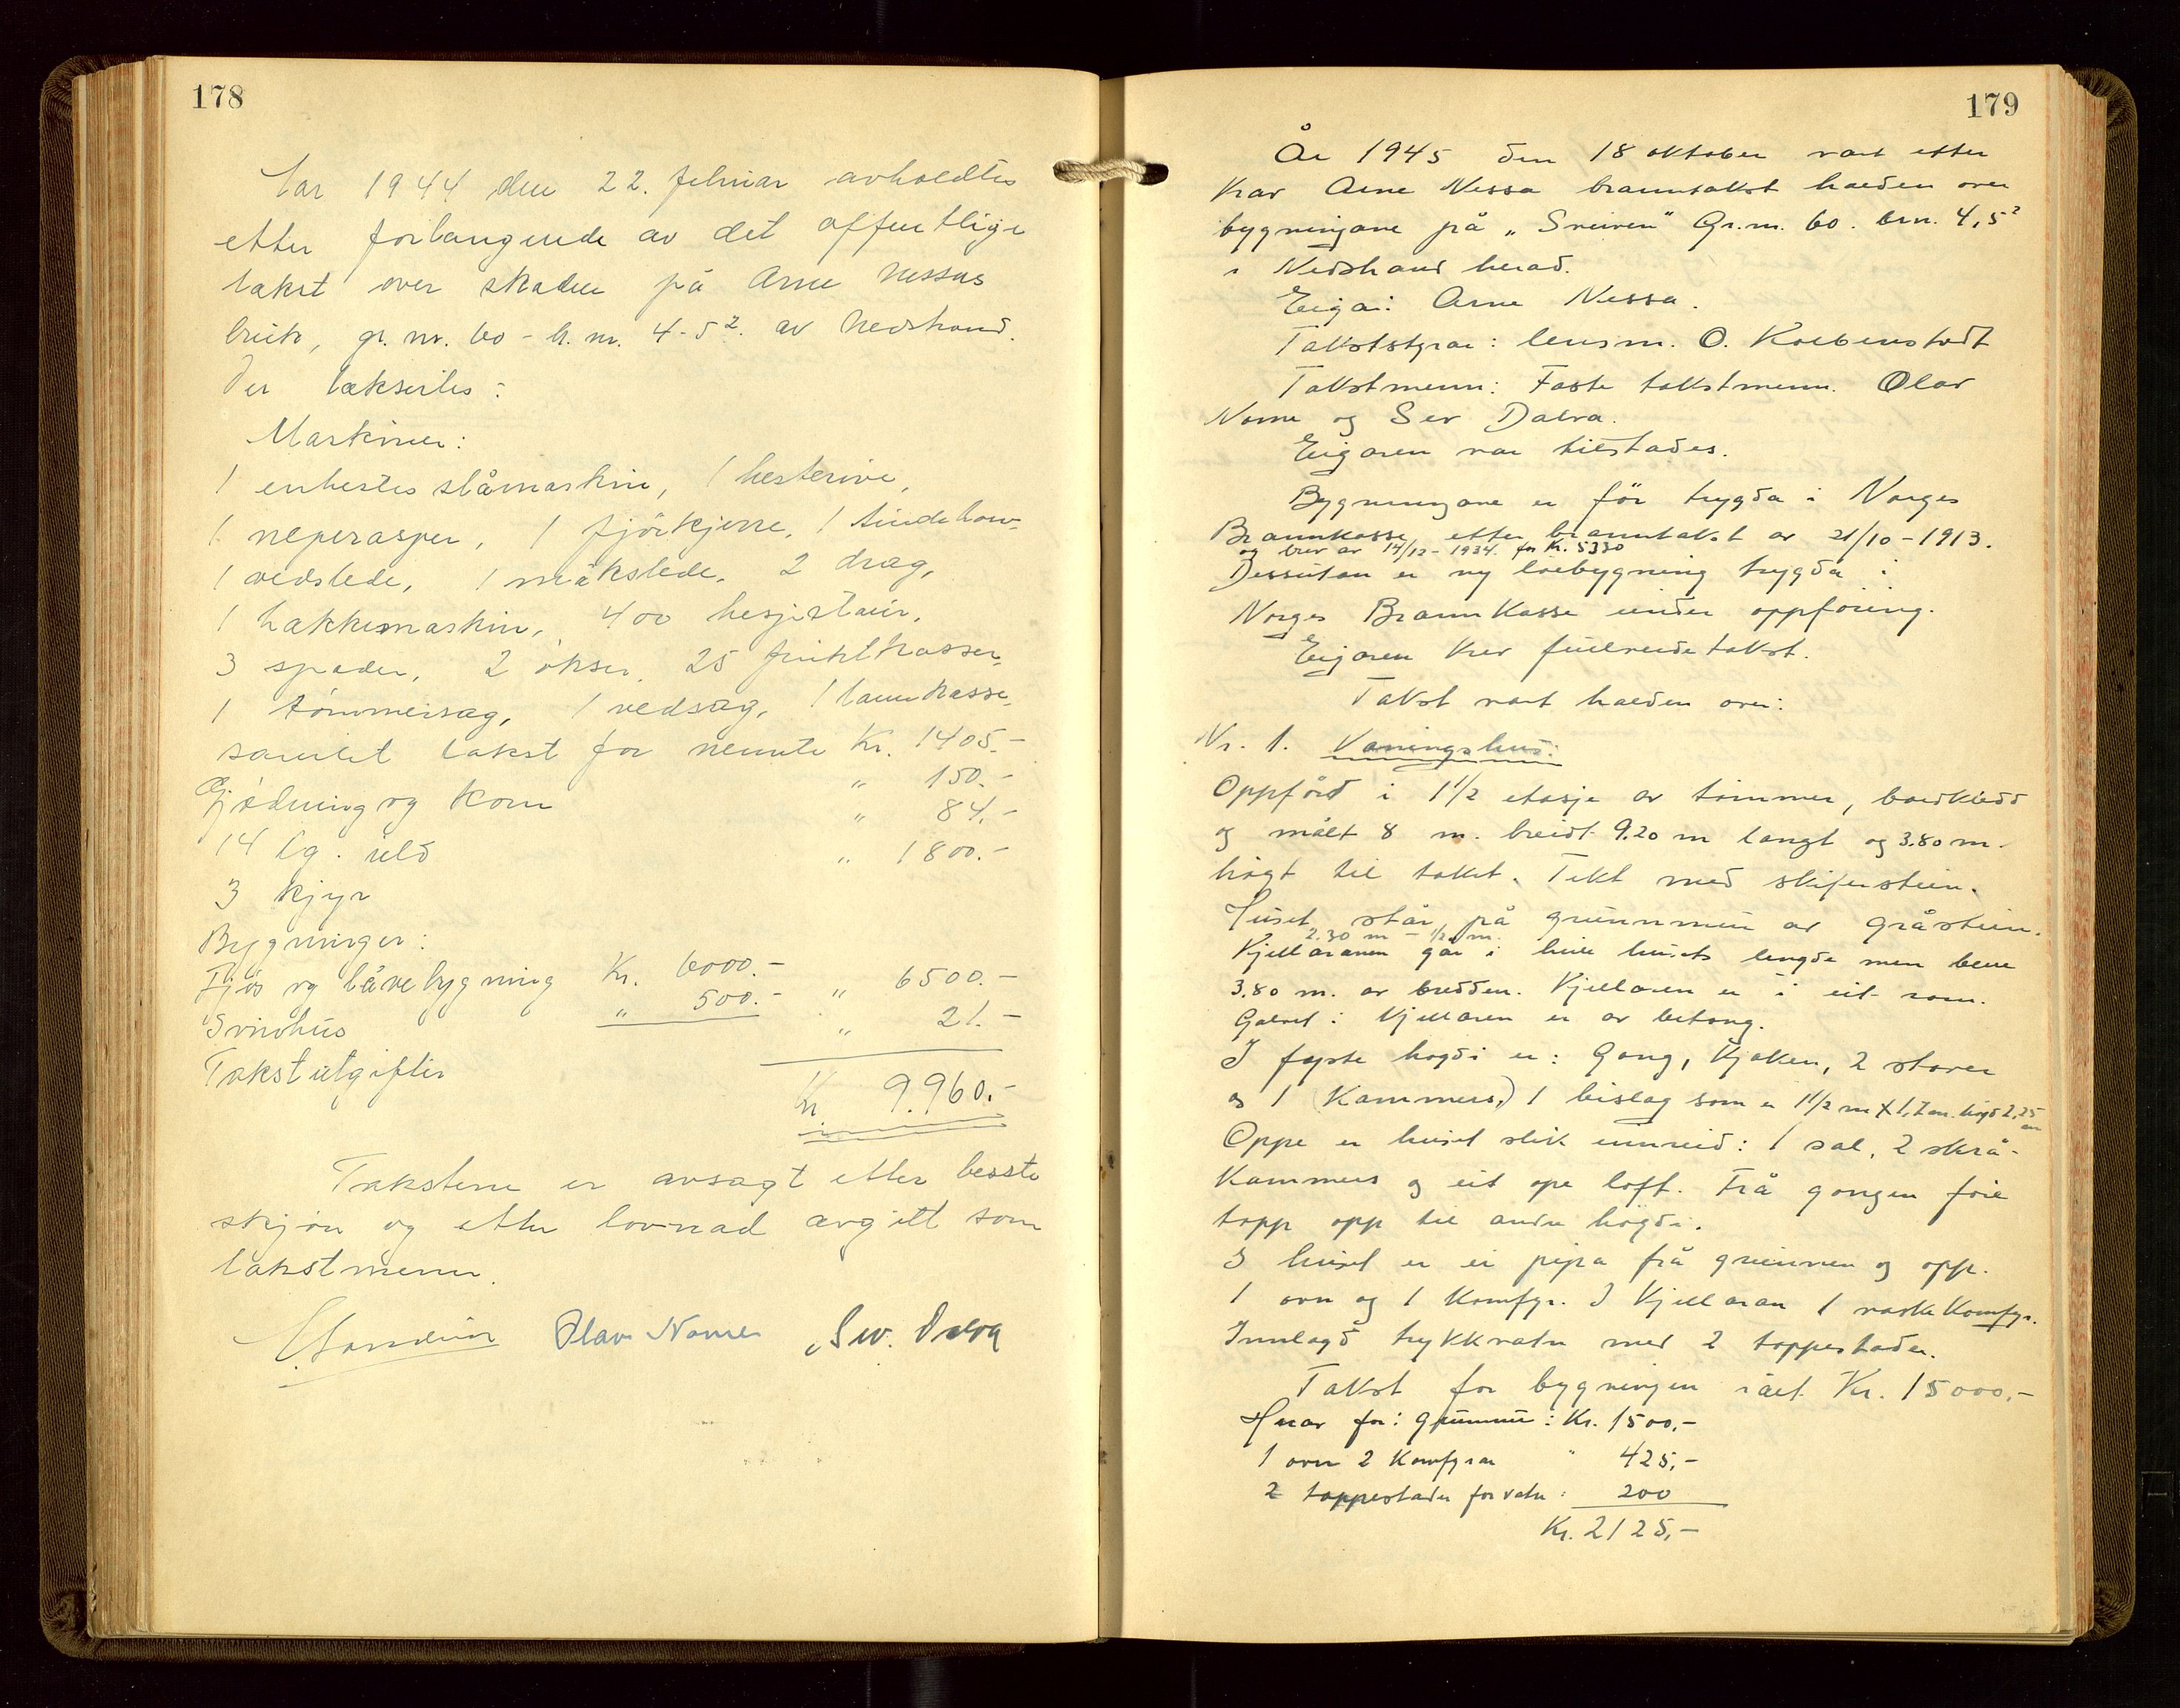 178
Aar 1944 den 22. februar avholdtes
etter forlangende av det offentlige
takst over skaden på Arne Nessas
bruk, gr. nr. 60 - b. nr. 4-5². av Nedstrand.
Der taksertes:
Maskiner:
1 enhestes slåmaskin, 1 hesterive,
1 neperasper, 1 fjörkjerre, 1 tindehorv
1 vedslede, 1 måkslede, 2 drag,
1 hakkemaskin, 400 hesjestaur,
3 spader, 2 økser, 25 fruktkasser,
1 tömmersag, 1 vedsag, 1 kasse,
samlet takst for nemnte Kr. 1405.-
Gjødning og korn " 150.-
14 kg. uld " 84.-
3 kjyr " 1800.-
Bygninger:
Fjøs og låvebygning Kr. 6000.-
Svinhus " 500.- " 6500.-
Takstutgifter " 21.-
Kr 9.960.-
Taksten er avsagt etter besste
skjøn og etter lovnad avgitt som
takstmenn.
Olav Norne Sev. Dalva
179
År 1945 den 18 oktober vart etter
krav Arne Nessa branntakst halden over
bygningane på „Sveiren" Gr.nr. 60. brn. 4,5²
i Nedstrand herad.
Eigar: Arne Nessa.
Takststyrar: lensm. O. Kolbenstvedt
Takstmenn: Faste takstmenn. Olav
Norne og Sev Dalva.
Eigaren var tilstades.
Bygningane er för trygda i Norges
Brannkasse etter branntakst av 21/10-1913.
og brev av 14/12-1934. for kr. 5330
Dessutan er ny löebygning trygda i
Norges Brannkasse under oppföring.
Eigaren krev fullverde takst.
Takst vart halden over:
Nr. 1. Vaningshus:
Oppförd i 1 1/2 etasje av tömmer, bordkledd
og målt 8 m. breidt 9.20 m langt og 3.80 m.
högt til taket. Tekt med skiferstein.
Huset står på grunnmur av gråstein.
2.30 m - 1/2 m.
Kjellaren går i heile husets lengde men bere
3.80 m. av bredden. Kjellaren er i eit rom.
Golvet i Kjellaren er av betong.
I fyrste högdi er: Gang, Kjøken, 2 stover
og 1 (Kammers,) 1 bislag som er 1 1/2 m x 1,7 m. högd 2,25
m
Oppe er huset slik innreid: 1 sal, 2 skrå-
kammers og eit ope loft. Frå gangen före
topp opp til andre högdi.
I huset er ei pipa frå grunnen og opp.
1 ovn og 1 Komfyr. I Kjellaren 1 vaskekomfyr.
Innlagd trykkvatn med 2 tappestader.
Takst for bygningen i alt Kr. 15000,-
Hvar for: grunnmur: Kr. 1500,-
1 ovn 2 Komfyrar " 425,-
2 tappestader for vatn: 200
Kr. 2125,-